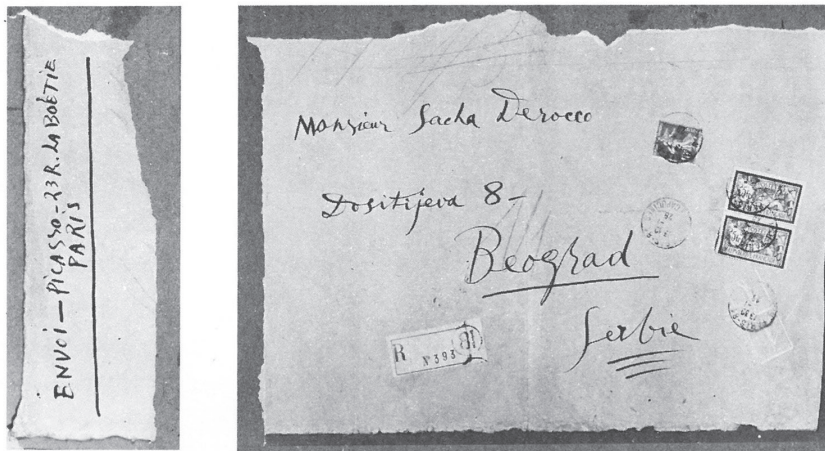 ENVOI — PICASSO - 23 R. LA BOËTIE
PARIS
Monsieur Sacha Derocco
Dositijeva 8 -
Beograd
Serbie
R
N° 393
81